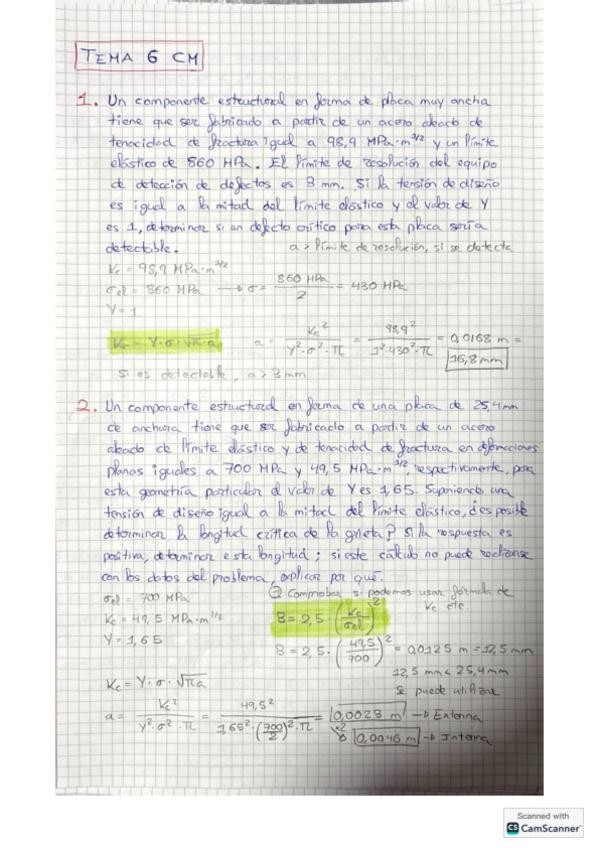 TEMA 6 CM
1. Un componente estructural en forma de placa muy ancha
tiene que ser fabricado a partir de un acero aleado de
tenacidad de fractura igual a 98,9 MPa·m^3/2 y un límite
elástico de 860 MPa. El límite de resolución del equipo
de detección de defectos es 3 mm. Si la tensión de diseño
es igual a la mitad del límite elástico y el valor de Y
es 1, determinar si un defecto crítico para esta placa sería
detectable.
a > límite de resolución, si se detecta
Kc = 98,9 MPa·m^3/2
σel = 860 MPa → σ = 860 MPa / 2 = 430 MPa
Y = 1
Kc = Y·σ·√π·a
a = Kc² / Y²·σ²·π = 98,9² / 1²·430²·π = 0,0168 m =
16,8 mm
Si es detectable, a > 3 mm
2. Un componente estructural en forma de una placa de 25,4 mm
de anchura tiene que ser fabricado a partir de un acero
aleado de límite elástico y de tenacidad de fractura en deformaciones
planas iguales a 700 MPa y 49,5 MPa·m^3/2, respectivamente, para
esta geometría particular el valor de Y es 1,65. Suponiendo una
tensión de diseño igual a la mitad del límite elástico, ¿es posible
determinar la longitud crítica de la grieta? Si la respuesta es
positiva, determinar esta longitud; si este cálculo no puede realizarse
con los datos del problema, explicar por qué.
σel = 700 MPa
① Comprobar si podemos usar fórmula de
Kc etc
Kc = 49,5 MPa·m^1/2
B = 2,5 (Kc / σel)²
Y = 1,65
B = 2,5 · (49,5 / 700)² = 0,0125 m = 12,5 mm
12,5 mm < 25,4 mm
Se puede utilizar
Kc = Y·σ·√πa
a = Kc² / Y²·σ²·π = 49,5² / 1,65²·(700/2)²·π = 0,0023 m → Externa
x2 0,0046 m → Interna
Scanned with
CS CamScanner